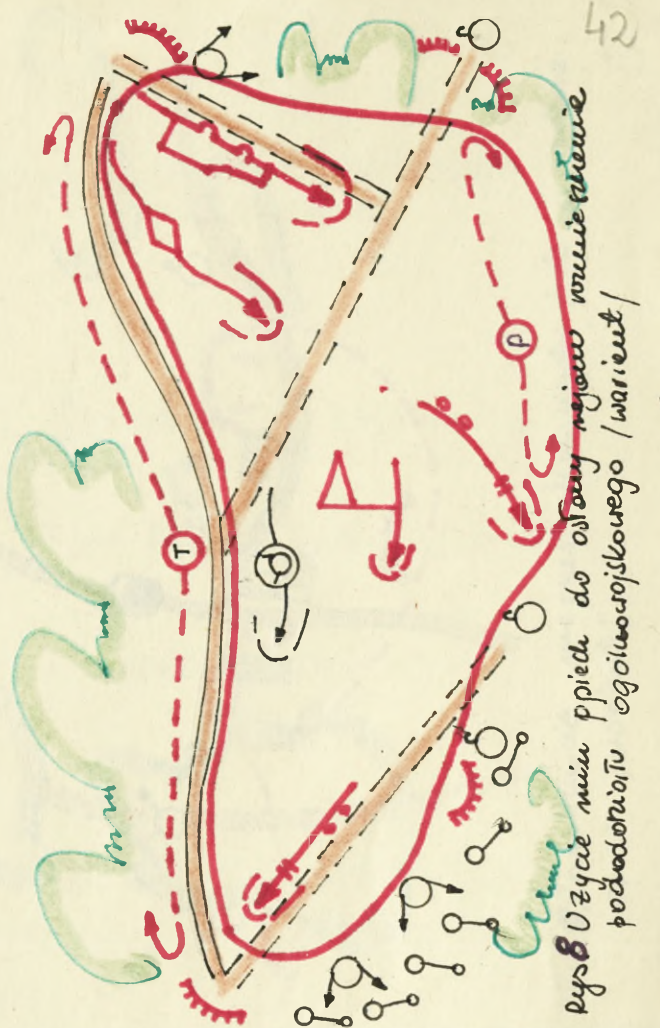 42
T
P
Rys 8 Użycie min ppiech do osłony rejonu rozmieszczenia
pododdziału ogólnowojskowego /wariant/